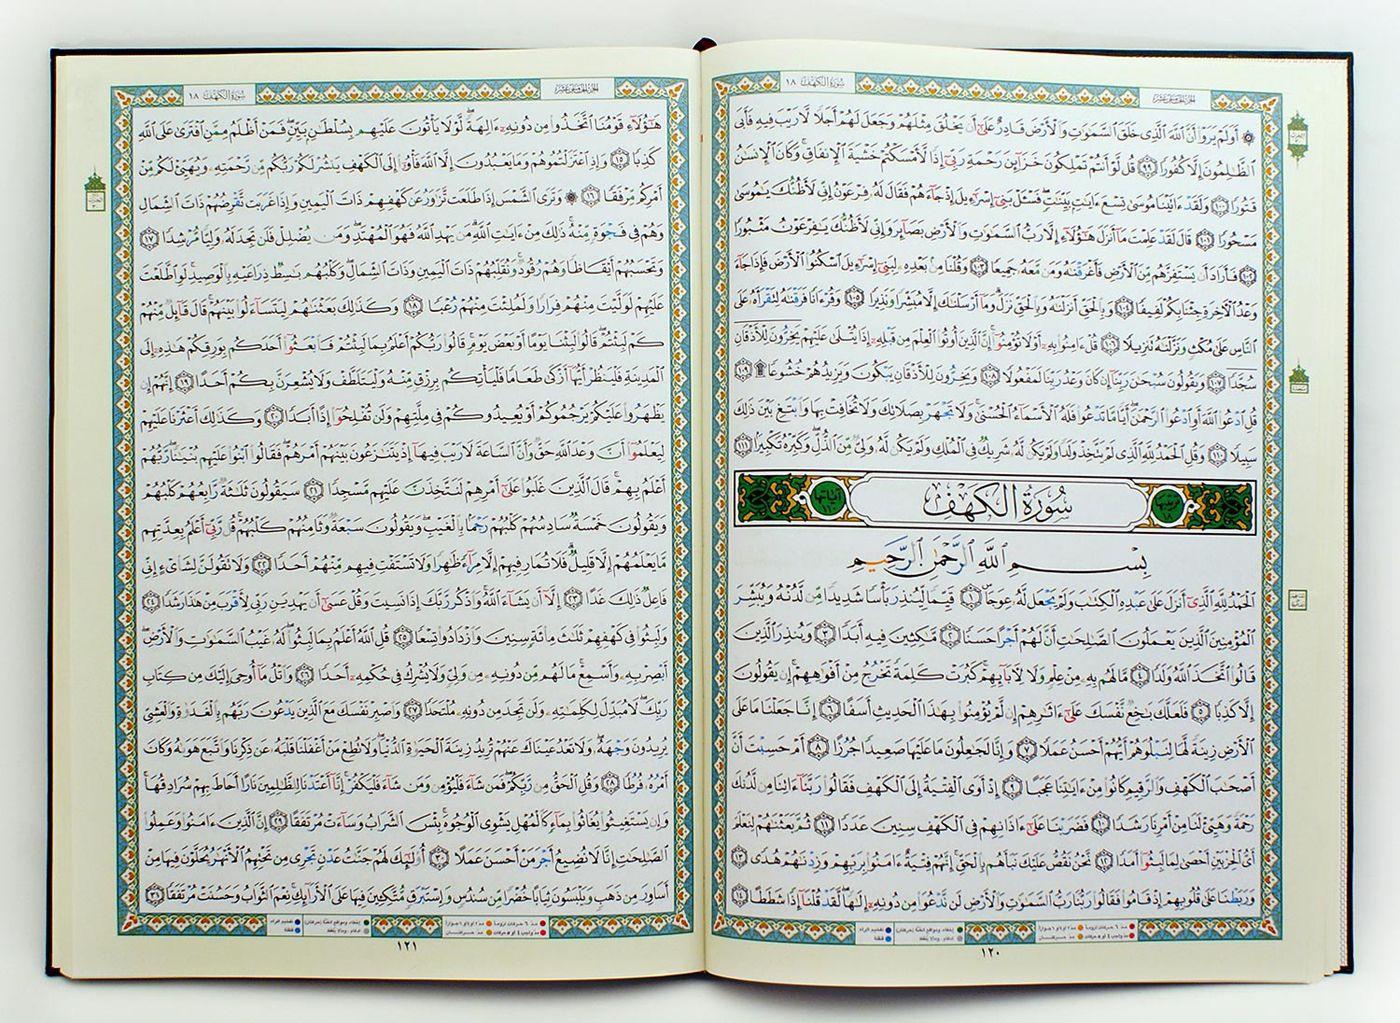 سورة الكهف ١٨
الجزء الخامس عشر
۞ أولم يروا أن الله الذى خلق السموت والأرض قادر على أن يخلق مثلهم وجعل لهم أجلا لا ريب فيه فأبى
الظلمون إلا كفورا ٩٩ قل لو أنتم تملكون خزائن رحمة ربى إذا لأمسكتم خشية الإنفاق وكان الإنسن
قتورا ١٠٠ ولقد ءاتينا موسى تسع ءايت بينت فسئل بنى إسرءيل إذ جاءهم فقال له فرعون إنى لأظنك يموسى
مسحورا ١٠١ قال لقد علمت ما أنزل هؤلاء إلا رب السموت والأرض بصائر وإنى لأظنك يفرعون مثبورا
١٠٢ فأراد أن يستفزهم من الأرض فأغرقنه ومن معه جميعا ١٠٣ وقلنا من بعده لبنى إسرءيل اسكنوا الأرض فإذا جاء
وعد الآخرة جئنا بكم لفيفا ١٠٤ وبالحق أنزلنه وبالحق نزل وما أرسلنك إلا مبشرا ونذيرا ١٠٥ وقرءانا فرقنه لتقرأه على
الناس على مكث ونزلنه تنزيلا ١٠٦ قل ءامنوا به أو لا تؤمنوا إن الذين أوتوا العلم من قبله إذا يتلى عليهم يخرون للأذقان
سجدا ١٠٧ ويقولون سبحن ربنا إن كان وعد ربنا لمفعولا ١٠٨ ويخرون للأذقان يبكون ويزيدهم خشوعا ۩ ١٠٩
قل ادعوا الله أو ادعوا الرحمن أيا ما تدعوا فله الأسماء الحسنى ولا تجهر بصلاتك ولا تخافت بها وابتغ بين ذلك
سبيلا ١١٠ وقل الحمد لله الذى لم يتخذ ولدا ولم يكن له شريك فى الملك ولم يكن له ولى من الذل وكبره تكبيرا ١١١
سورة الكهف
بسم الله الرحمن الرحيم
الحمد لله الذى أنزل على عبده الكتب ولم يجعل له عوجا ١ قيما لينذر بأسا شديدا من لدنه ويبشر
المؤمنين الذين يعملون الصلحت أن لهم أجرا حسنا ٢ مكثين فيه أبدا ٣ وينذر الذين
قالوا اتخذ الله ولدا ٤ ما لهم به من علم ولا لآبائهم كبرت كلمة تخرج من أفوههم إن يقولون
إلا كذبا ٥ فلعلك بخع نفسك على ءاثرهم إن لم يؤمنوا بهذا الحديث أسفا ٦ إنا جعلنا ما على
الأرض زينة لها لنبلوهم أيهم أحسن عملا ٧ وإنا لجعلون ما عليها صعيدا جرزا ٨ أم حسبت أن
أصحب الكهف والرقيم كانوا من ءايتنا عجبا ٩ إذ أوى الفتية إلى الكهف فقالوا ربنا ءاتنا من لدنك
رحمة وهيئ لنا من أمرنا رشدا ١٠ فضربنا على ءاذانهم فى الكهف سنين عددا ١١ ثم بعثنهم لنعلم
أى الحزبين أحصى لما لبثوا أمدا ١٢ نحن نقص عليك نبأهم بالحق إنهم فتية ءامنوا بربهم وزدنهم هدى ١٣
وربطنا على قلوبهم إذ قاموا فقالوا ربنا رب السموت والأرض لن ندعوا من دونه إلها لقد قلنا إذا شططا ١٤
١٢٠
سورة الكهف ١٨
الجزء الخامس عشر
هؤلاء قومنا اتخذوا من دونه ءالهة لولا يأتون عليهم بسلطن بين فمن أظلم ممن افترى على الله
كذبا ١٥ وإذ اعتزلتموهم وما يعبدون إلا الله فأوا إلى الكهف ينشر لكم ربكم من رحمته ويهيئ لكم من
أمركم مرفقا ١٦ ۞ وترى الشمس إذا طلعت تزور عن كهفهم ذات اليمين وإذا غربت تقرضهم ذات الشمال
وهم فى فجوة منه ذلك من ءايت الله من يهد الله فهو المهتد ومن يضلل فلن تجد له وليا مرشدا ١٧
وتحسبهم أيقاظا وهم رقود ونقلبهم ذات اليمين وذات الشمال وكلبهم بسط ذراعيه بالوصيد لو اطلعت
عليهم لوليت منهم فرارا ولملئت منهم رعبا ١٨ وكذلك بعثنهم ليتساءلوا بينهم قال قائل منهم
كم لبثتم قالوا لبثنا يوما أو بعض يوم قالوا ربكم أعلم بما لبثتم فابعثوا أحدكم بورقكم هذه إلى
المدينة فلينظر أيها أزكى طعاما فليأتكم برزق منه وليتلطف ولا يشعرن بكم أحدا ١٩ إنهم إن
يظهروا عليكم يرجموكم أو يعيدوكم فى ملتهم ولن تفلحوا إذا أبدا ٢٠ وكذلك أعثرنا عليهم
ليعلموا أن وعد الله حق وأن الساعة لا ريب فيها إذ يتنزعون بينهم أمرهم فقالوا ابنوا عليهم بنينا ربهم
أعلم بهم قال الذين غلبوا على أمرهم لنتخذن عليهم مسجدا ٢١ سيقولون ثلثة رابعهم كلبهم
ويقولون خمسة سادسهم كلبهم رجما بالغيب ويقولون سبعة وثامنهم كلبهم قل ربى أعلم بعدتهم
ما يعلمهم إلا قليل فلا تمار فيهم إلا مراء ظهرا ولا تستفت فيهم منهم أحدا ٢٢ ولا تقولن لشائ إنى
فاعل ذلك غدا ٢٣ إلا أن يشاء الله واذكر ربك إذا نسيت وقل عسى أن يهدين ربى لأقرب من هذا رشدا ٢٤
ولبثوا فى كهفهم ثلث مائة سنين وازدادوا تسعا ٢٥ قل الله أعلم بما لبثوا له غيب السموت والأرض
أبصر به وأسمع ما لهم من دونه من ولى ولا يشرك فى حكمه أحدا ٢٦ واتل ما أوحى إليك من كتاب
ربك لا مبدل لكلمته ولن تجد من دونه ملتحدا ٢٧ واصبر نفسك مع الذين يدعون ربهم بالغدوة والعشى
يريدون وجهه ولا تعد عيناك عنهم تريد زينة الحيوة الدنيا ولا تطع من أغفلنا قلبه عن ذكرنا واتبع هوىه وكان
أمره فرطا ٢٨ وقل الحق من ربكم فمن شاء فليؤمن ومن شاء فليكفر إنا أعتدنا للظلمين نارا أحاط بهم سرادقها
وإن يستغيثوا يغاثوا بماء كالمهل يشوى الوجوه بئس الشراب وساءت مرتفقا ٢٩ إن الذين ءامنوا وعملوا
الصلحت إنا لا نضيع أجر من أحسن عملا ٣٠ أولئك لهم جنت عدن تجرى من تحتهم الأنهر يحلون فيها من
أساور من ذهب ويلبسون ثيابا خضرا من سندس وإستبرق متكئين فيها على الأرائك نعم الثواب وحسنت مرتفقا ٣١
١٢١